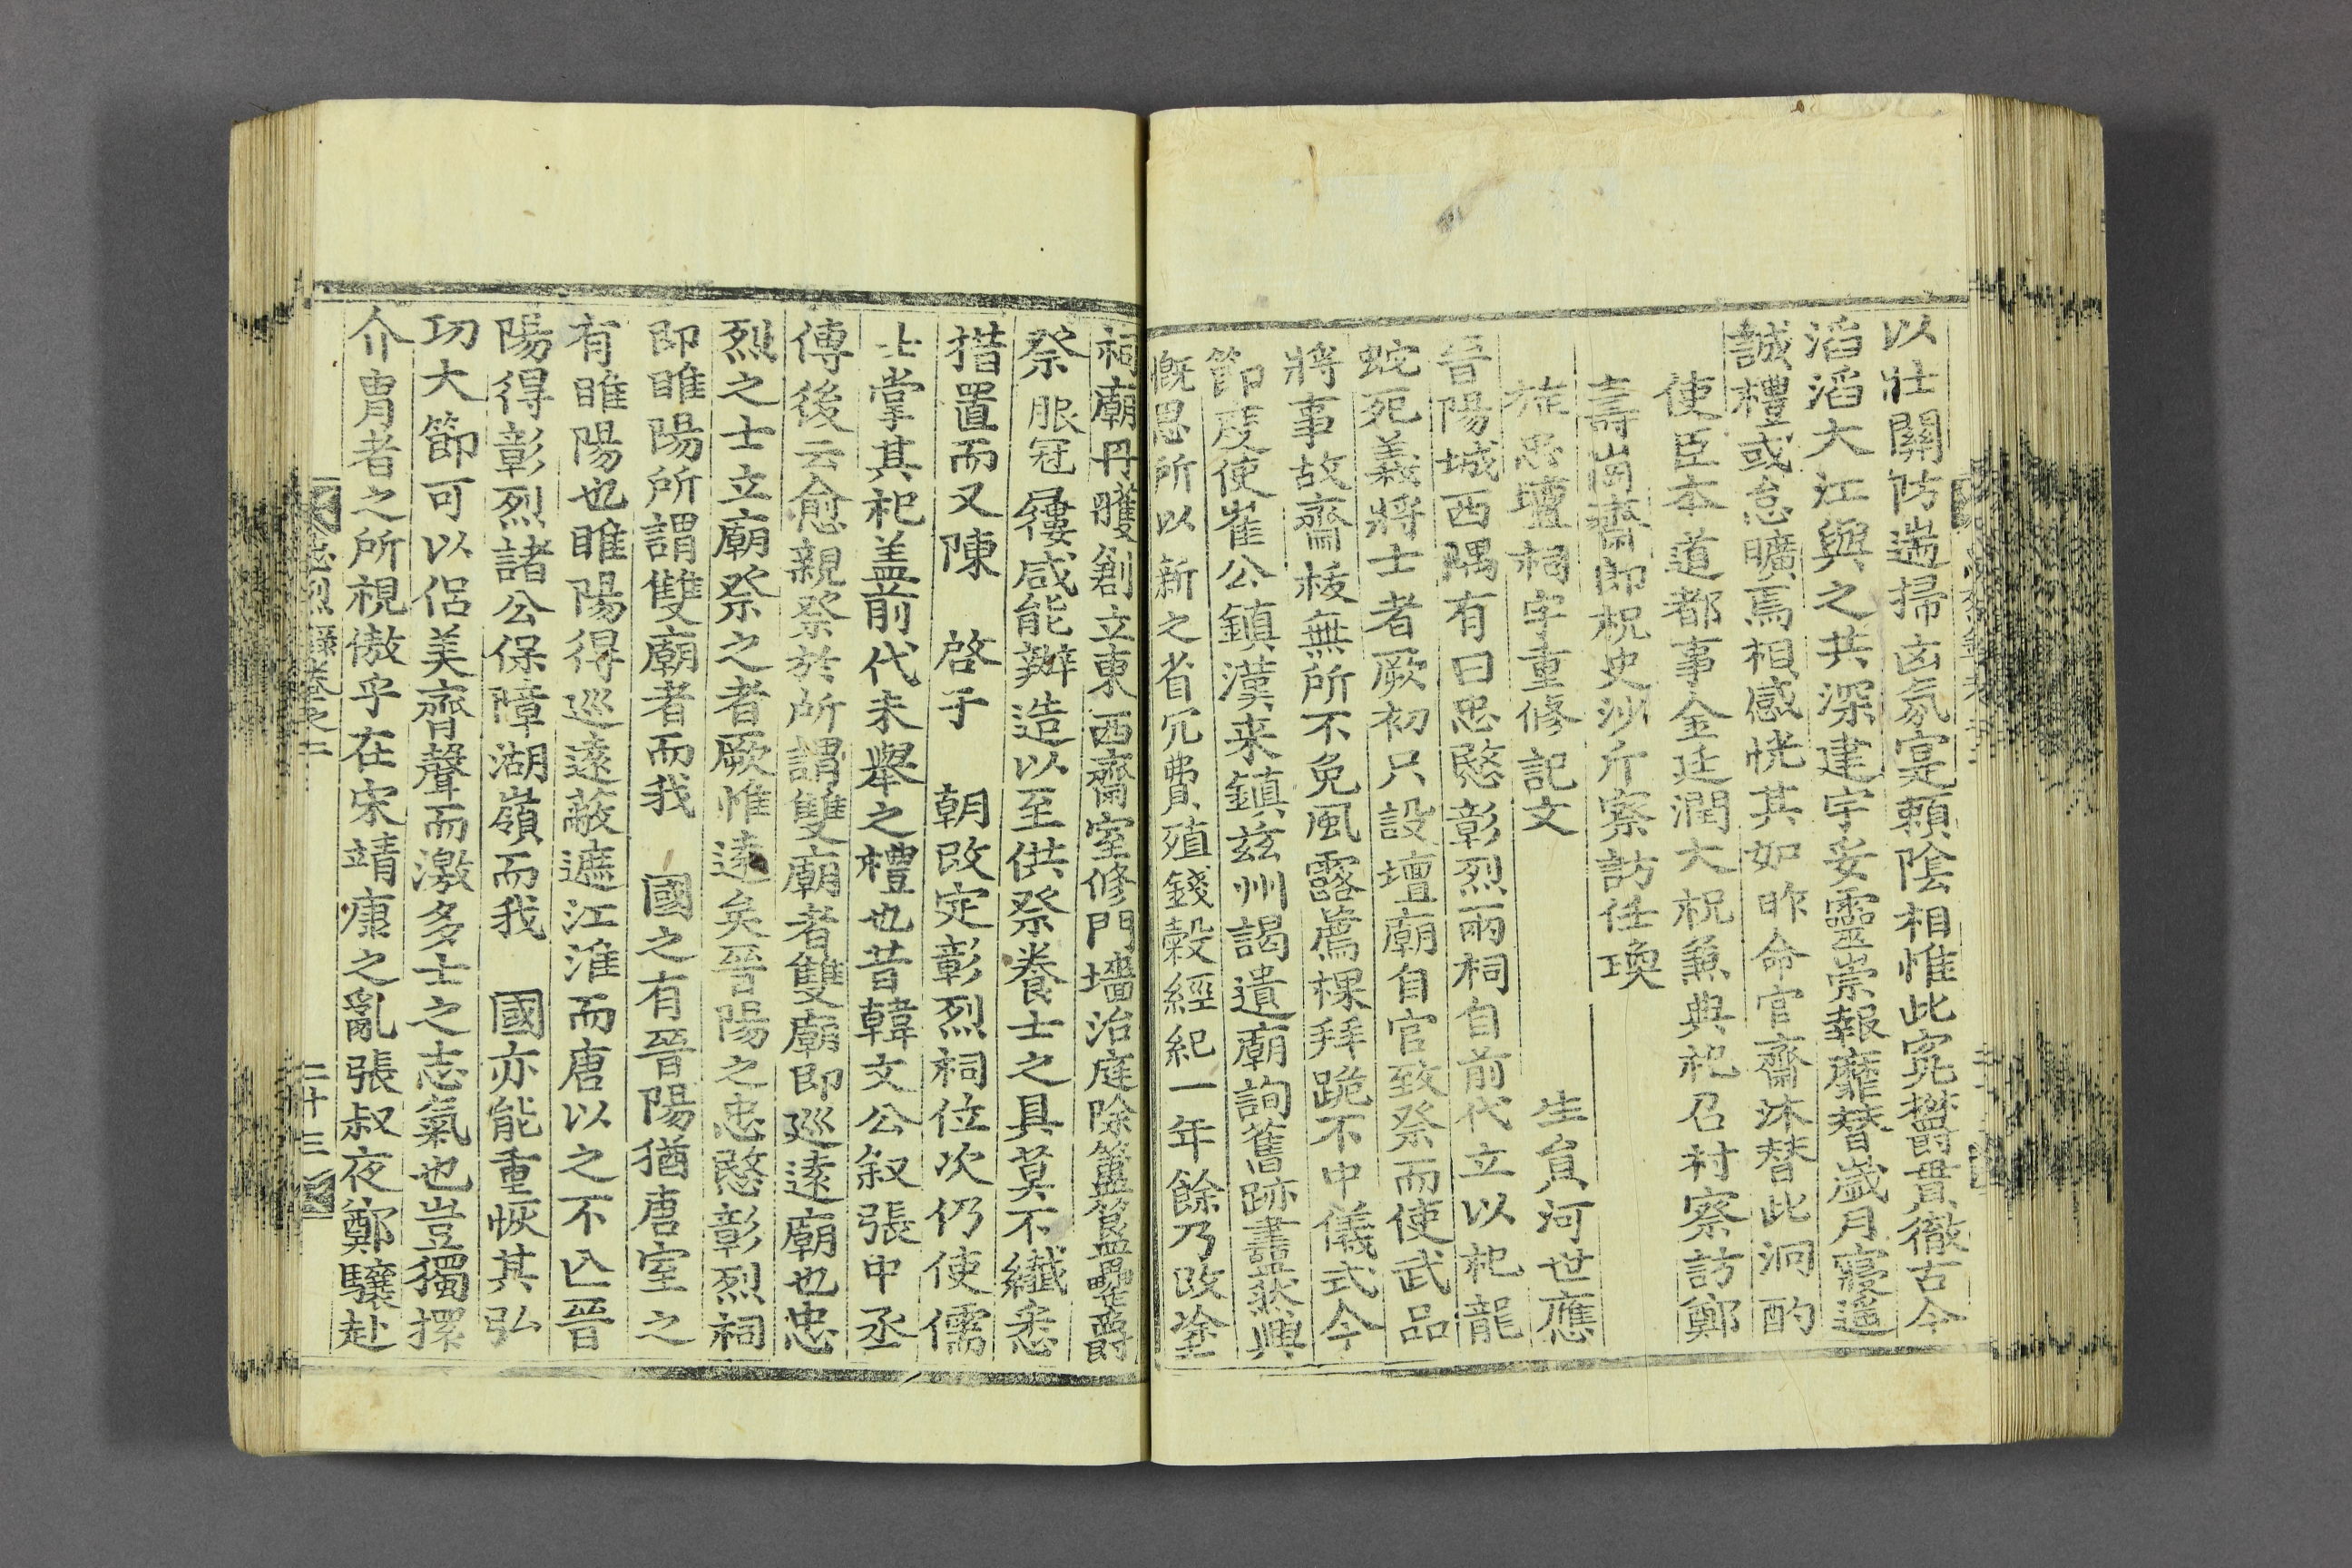 以壯關防遄掃凶氛寔賴陰相惟此寃欝貫徹古今
滔滔大江與之共深建宇妥靈崇報靡替歲月寢遥
誠禮或怠曠焉相感恍其如昨命官齋沐替此泂酌
使臣本道都事金廷潤大祝兼典祀召村察訪鄭
壽崗齋郎祝史沙斤察訪任瑍
旌忠壇祠宇重修記文 生員河世應
晉陽城西隅有曰忠愍彰烈兩祠自前代立以祀龍
蛇死義將士者厥初只設壇廟自官致祭而使武品
將事故齋祓無所不免風露薦裸拜跪不中儀式今
節度使崔公鎮漢来鎮玆州謁遺廟詢舊跡衋然興
慨思所以新之省冗費殖錢穀經紀一年餘乃改塗
祠廟丹雘創立東西齋室修門墻治庭除簠簋罍爵
祭服冠屨咸能辦造以至供祭養士之具莫不纖悉
措置而又陳 啓于 朝改定彰烈祠位次仍使儒
士掌其祀盖前代未舉之禮也昔韓文公叙張中丞
傳後云愈親祭於所謂雙廟者雙廟即廵遠廟也忠
烈之士立廟祭之者厥惟逺矣晉陽之忠愍彰烈祠
即睢陽所謂雙廟者而我 國之有晉陽猶唐室之
有睢陽也睢陽得巡遠蔽遮江淮而唐以之不亾晉
陽得彰烈諸公保障湖嶺而我 國亦能重恢其弘
功大節可以侶美齊聲而激多士之志氣也豈獨擐
介胄者之所視傲乎在宋靖康之亂張叔夜鄭驤赴
忠烈錄卷之二 二十三